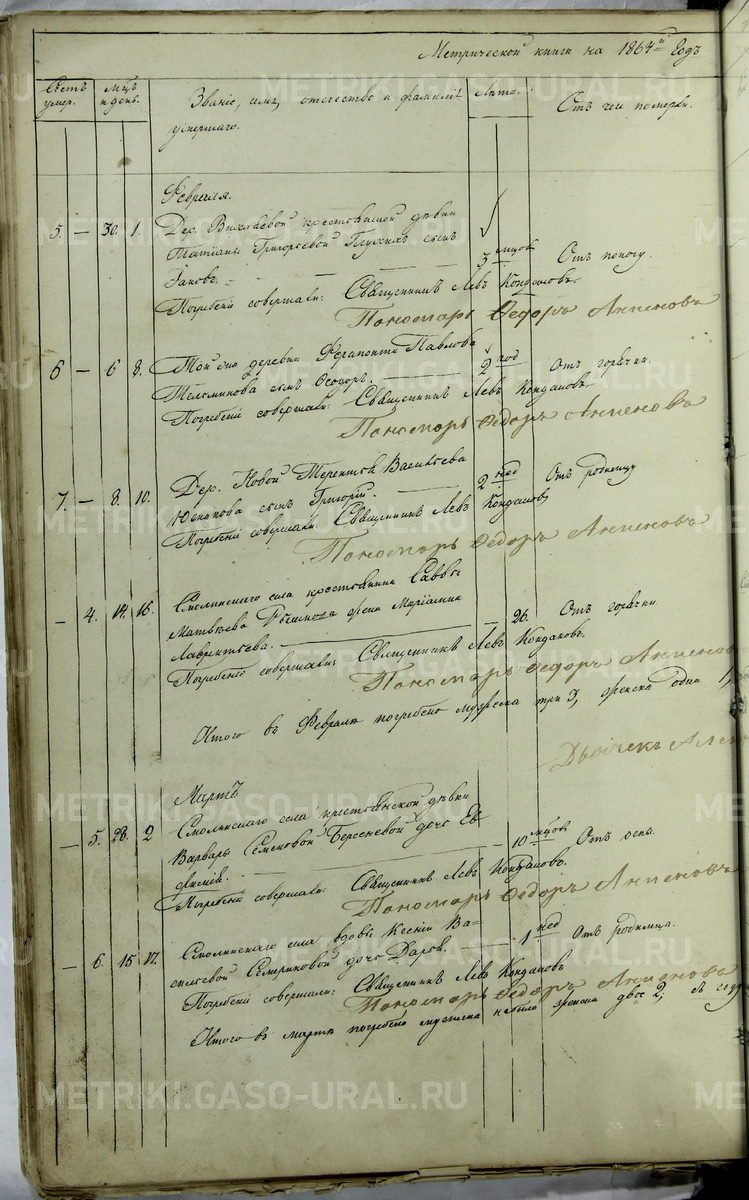 Метрической книги на 1864й Годъ
Счетъ умер.
Мцъ и день.
Званіе, имя, отечество и фамилія умершаго.
Лѣта.
Отъ чего померъ.
Февраля.
5. — 30. 1. Дер. крестьянской дѣвки
Татіаны Григорьевой Глухихъ сынъ
Іаковъ. 3 мцов Отъ поносу.
Погребеніе совершали: Священникъ Левъ Кондаковъ.
Пономарь Ѳедоръ
6 — 6 8. Той же деревни Ферапонта Павлова
сынъ Ѳеодоръ. 2 год Отъ горячки.
Погребеніе совершали: Священникъ Левъ Кондаковъ.
Пономарь Ѳедоръ
7. — 8. 10. Дер. Новой Терентія Васильева
сынъ Григорій. 2 нед Отъ родимцу
Погребеніе совершали Священникъ Левъ Кондаковъ
Пономарь Ѳедоръ
— 4. 14. 16. Смолинскаго села крестьянина Саввы
Матвѣева жена Маріамна
Лаврентьева. — 26. Отъ горячки.
Погребеніе совершали: Священникъ Левъ Кондаковъ.
Пономарь Ѳедоръ
Итого въ Февралѣ погребено мужеска три 3, женска одна 1,
Марта
— 5. 28. 2 Смолинскаго села крестьянской дѣвки
Варвары Семеновой Берсеневой дочь Ев-
фимія. — 10 мцов Отъ оспы.
Погребеніе совершали Священникъ Левъ Кондаковъ.
Пономарь Ѳедоръ
— 6. 15 17. Смолинскаго села вдовы Ксеніи Ва-
сильевой дочь Дарья. 1 нед Отъ родимца.
Погребеніе совершали: Священникъ Левъ Кондаковъ
Пономарь Ѳедоръ
Итого въ мартѣ погребено мужеска небыло женска двое 2,
METRIKI.GASO-URAL.RU